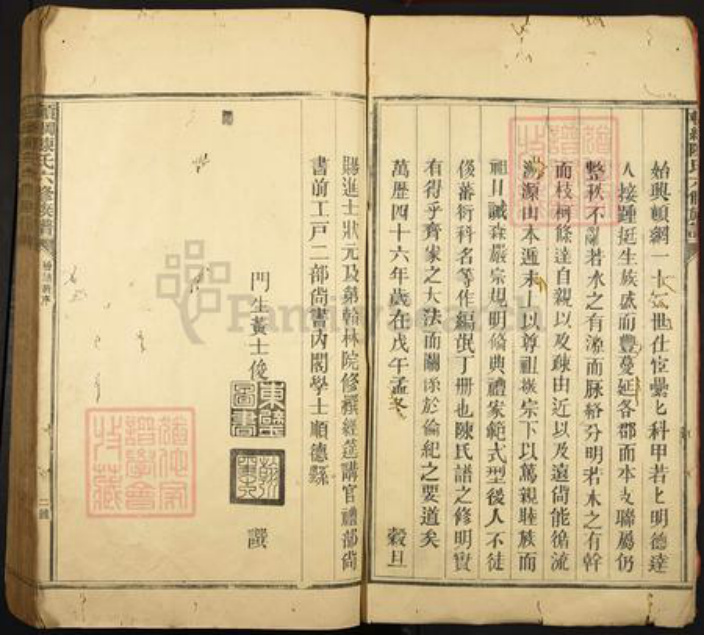 始興頓綱一十六世仕宦纍匕科甲若匕明德達
人接踵挺生族盛而豐蔓延各郡而本支聯屬仍
整秩不亂若水之有源而脉絡分明若木之有幹
而枝柯條達自親以及疎由近以及遠尙能循流
溯源由本遡末上以尊祖敬宗下以篤親睦族而
祖目誠森嚴宗規明脩典禮家範式型後人不徒
俟蕃衍科名等作編氓丁册也陳氏譜之修明實
有得乎齊家之大法而關係於倫紀之要道矣
萬歷四十六年歲在戊午孟冬 穀旦
賜進士狀元及第翰林院修撰經筵講官禮部尙
書前工戸二部尙書內閣學士順德縣
門生黃士俊 撰
東壁圖書
陳氏六修族譜
二
FamilySearch